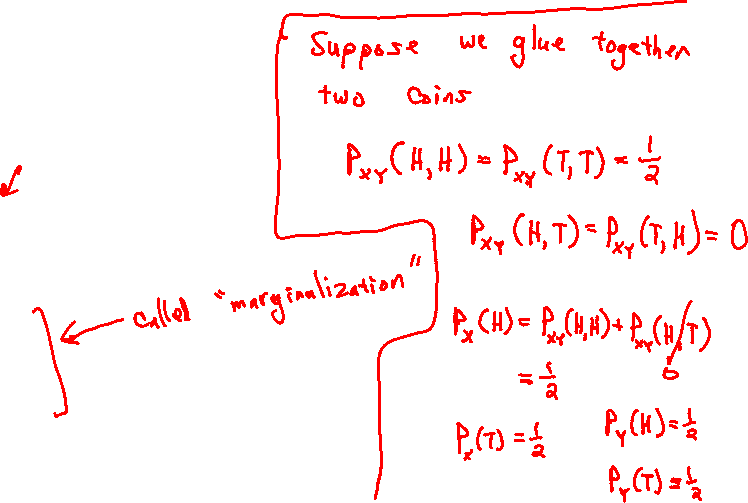 Suppose we glue together
two coins
P_XY(H,H) = P_XY(T,T) = 1/2
P_XY(H,T) = P_XY(T,H) = 0
called "marginalization"
P_X(H) = P_XY(H,H) + P_XY(H,T) 0
= 1/2
P_X(T) = 1/2
P_Y(H) = 1/2
P_Y(T) = 1/2